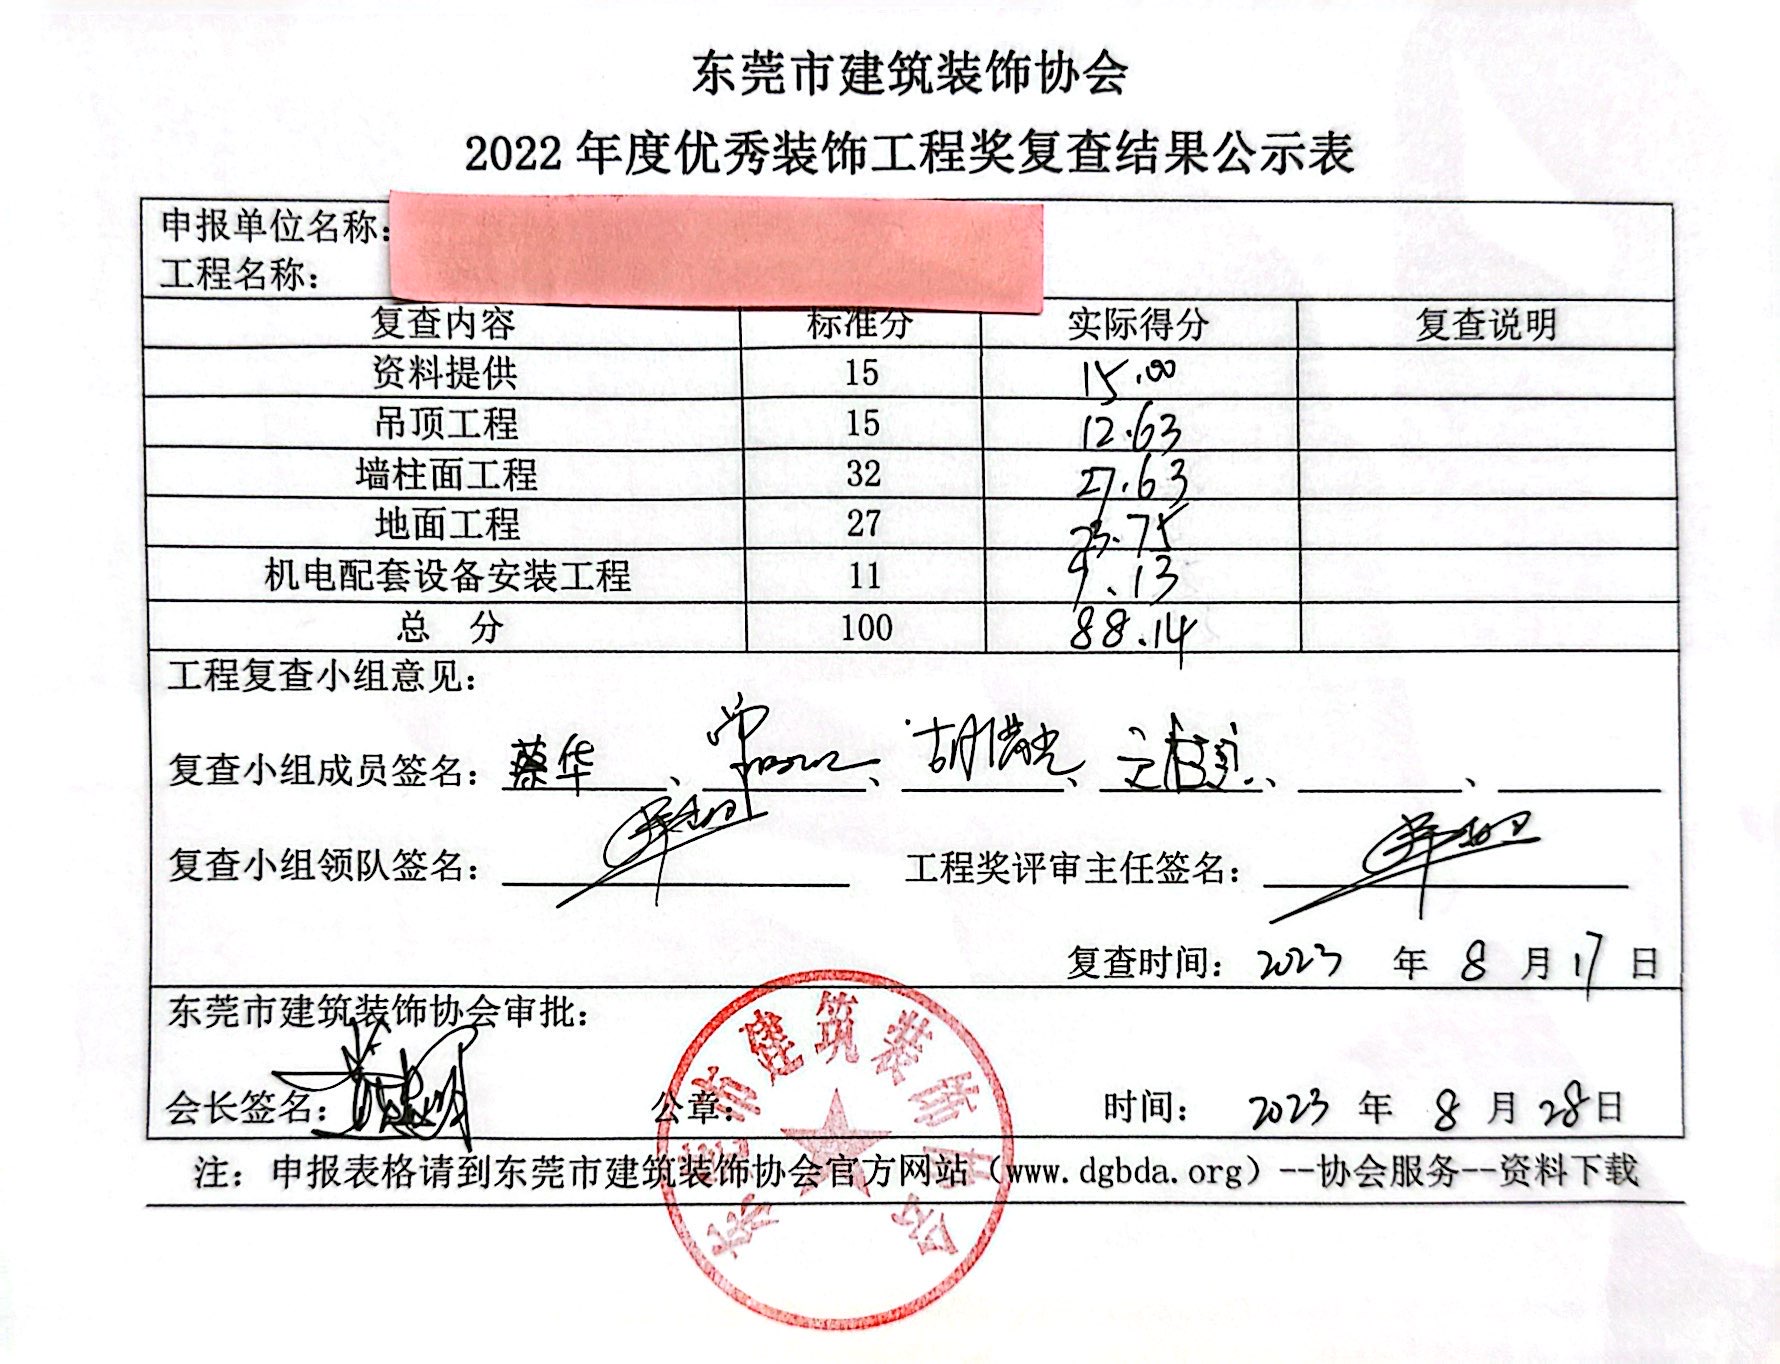 东莞市建筑装饰协会
2022 年度优秀装饰工程奖复查结果公示表
申报单位名称:
工程名称:
复查内容 标准分 实际得分 复查说明
资料提供 15 15.00
吊顶工程 15 12.63
墙柱面工程 32 27.63
地面工程 27 23.75
机电配套设备安装工程 11 9.13
总 分 100 88.14
工程复查小组意见:
复查小组成员签名: 蔡华、 、 、 、 、
复查小组领队签名: 工程奖评审主任签名:
复查时间: 2023 年 8 月 17 日
东莞市建筑装饰协会审批:
会长签名: 公章: 时间: 2023 年 8 月 28 日
注: 申报表格请到东莞市建筑装饰协会官方网站（www.dgbda.org）--协会服务--资料下载
东莞市建筑装饰协会